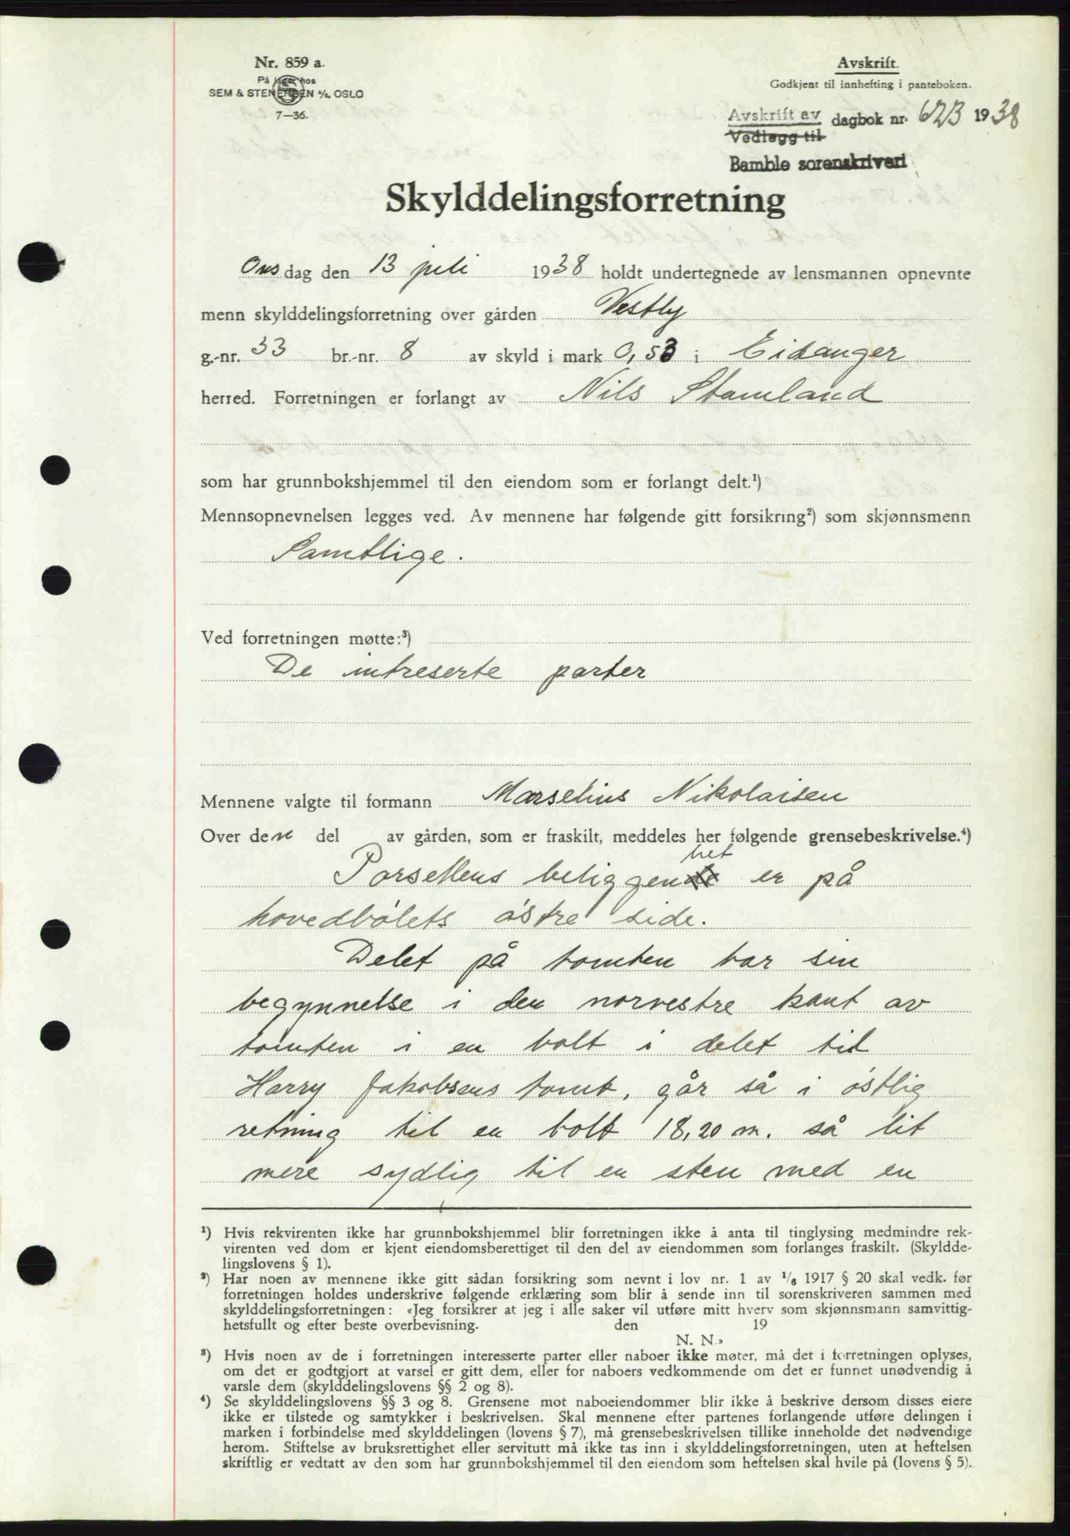 Nr. 859 a.
På lager hos
SEM & STENERSEN A/S, OSLO
7—36.
Avskrift.
Godkjent til innhefting i panteboken.
Avskrift av
Vedlegg til
dagbok nr. 623 1938
Bamble sorenskriveri
Skylddelingsforretning
Onsdag den 13 juli 1938 holdt undertegnede av lensmannen opnevnte
menn skylddelingsforretning over gården Vestby
g.-nr. 33 br.-nr. 8 av skyld i mark 0,53 i Eidanger
herred. Forretningen er forlangt av Nils Stamland
som har grunnbokshjemmel til den eiendom som er forlangt delt.¹)
Mennsopnevnelsen legges ved. Av mennene har følgende gitt forsikring²) som skjønnsmenn
Samtlige.
Ved forretningen møtte:³)
De intreserte parter
Mennene valgte til formann Marselius Nikolaisen
Over den del av gården, som er fraskilt, meddeles her følgende grensebeskrivelse.⁴)
Parsellens beliggenhet er på
hovedbølets østre side.
Delet på tomten tar sin
begynnelse i den norvestre kant av
tomten i en bolt i delet til
Harry Jakobsens tomt, går så i østlig
retning til en bolt 18,20 m. så lit
mere sydlig til en sten med en
¹) Hvis rekvirenten ikke har grunnbokshjemmel blir forretningen ikke å anta til tinglysing medmindre rek-
virenten ved dom er kjent eiendomsberettiget til den del av eiendommen som forlanges fraskilt. (Skyldde-
lingslovens § 1).
²) Har noen av mennene ikke gitt sådan forsikring som nevnt i lov nr. 1 av 1/6 1917 § 20 skal vedk. før
forretningen holdes underskrive følgende erklæring som blir å sende inn til sorenskriveren sammen med
skylddelingsforretningen: «Jeg forsikrer at jeg i alle saker vil utføre mitt hverv som skjønnsmann samvittig-
hetsfullt og efter beste overbevisning. den 19
N. N.»
³) Hvis noen av de i forretningen interesserte parter eller naboer ikke møter, må det i forretningen oplyses,
om det er godtgjort at varsel er gitt dem, eller for naboers vedkommende om det er funnet unødvendig å
varsle dem (skylddelingslovens §§ 2 og 8).
⁴) Se skylddelingslovens §§ 3 og 8. Grensene mot naboeiendommer blir ikke å beskrive dersom disses eiere
ikke er tilstede og samtykker i beskrivelsen. Skal mennene efter partenes forlangende utføre delingen i
marken i forbindelse med skylddelingen (lovens § 7), må grensebeskrivelsen tillike inneholde det nødvendige
herom. Stiftelse av bruksrettighet eller servitutt må ikke tas inn i skylddelingsforretningen, uten at heftelsen
skriftlig er vedtatt av den som har grunnbokshjemmel til den eiendom som heftelsen skal hvile på (lovens § 5).